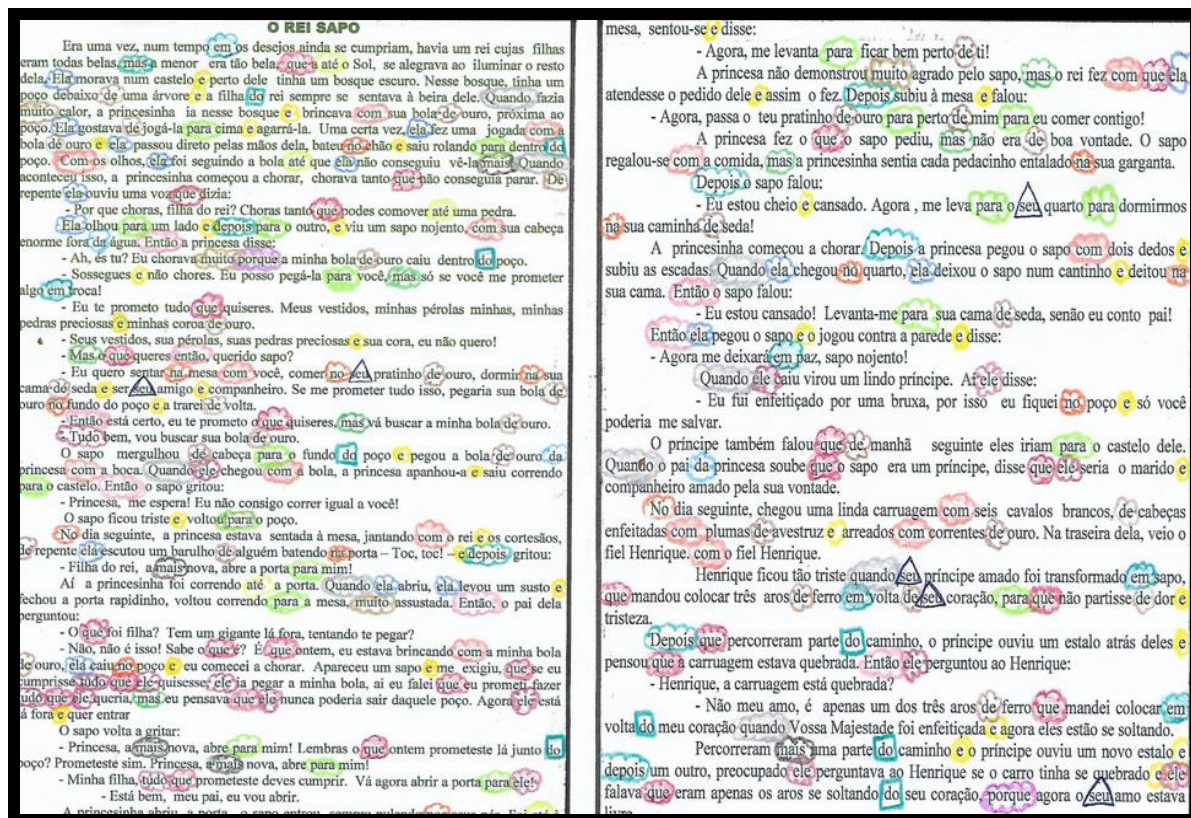 O REI SAPO
Era uma vez, num tempo em os desejos ainda se cumpriam, havia um rei cujas filhas
eram todas belas, mas a menor era tão bela, que a até o Sol, se alegrava ao iluminar o resto
dela. Ela morava num castelo e perto dele tinha um bosque escuro. Nesse bosque, tinha um
poço debaixo de uma árvore e a filha do rei sempre se sentava à beira dele. Quando fazia
muito calor, a princesinha ia nesse bosque e brincava com sua bola de ouro, próxima ao
poço. Ela gostava de jogá-la para cima e agarrá-la. Uma certa vez, ela fez uma jogada com a
bola de ouro e ela passou direto pelas mãos dela, bateu no chão e saiu rolando para dentro do
poço. Com os olhos, ela foi seguindo a bola até que ela não conseguiu vê-la mais. Quando
aconteceu isso, a princesinha começou a chorar, chorava tanto que não conseguia parar. De
repente ela ouviu uma voz que dizia:
- Por que choras, filha do rei? Choras tanto que podes comover até uma pedra.
Ela olhou para um lado e depois para o outro, e viu um sapo nojento, com sua cabeça
enorme fora da água. Então a princesa disse:
- Ah, és tu? Eu chorava muito porque a minha bola de ouro caiu dentro do poço.
- Sossegues e não chores. Eu posso pegá-la para você, mas só se você me prometer
algo em troca!
- Eu te prometo tudo que quiseres. Meus vestidos, minhas pérolas minhas, minhas
pedras preciosas e minhas coroa de ouro.
- Seus vestidos, sua pérolas, suas pedras preciosas e sua cora, eu não quero!
- Mas o que queres então, querido sapo?
- Eu quero sentar na mesa com você, comer no seu pratinho de ouro, dormir na sua
cama de seda e ser seu amigo e companheiro. Se me prometer tudo isso, pegaria sua bola de
ouro no fundo do poço e a trarei de volta.
- Então está certo, eu te prometo o que quiseres, mas vá buscar a minha bola de ouro.
- Tudo bem, vou buscar sua bola de ouro.
O sapo mergulhou de cabeça para o fundo do poço e pegou a bola de ouro da
princesa com a boca. Quando ele chegou com a bola, a princesa apanhou-a e saiu correndo
para o castelo. Então o sapo gritou:
- Princesa, me espera! Eu não consigo correr igual a você!
O sapo ficou triste e voltou para o poço.
No dia seguinte, a princesa estava sentada à mesa, jantando com o rei e os cortesãos,
de repente ela escutou um barulho de alguém batendo na porta – Toc, toc! – e depois gritou:
- Filha do rei, a mais nova, abre a porta para mim!
Aí a princesinha foi correndo até a porta. Quando ela abriu, ela levou um susto e
fechou a porta rapidinho, voltou correndo para a mesa, muito assustada. Então, o pai dela
perguntou:
- O que foi filha? Tem um gigante lá fora, tentando te pegar?
- Não, não é isso! Sabe o que é? É que ontem, eu estava brincando com a minha bola
de ouro, ela caiu no poço e eu comecei a chorar. Apareceu um sapo e me exigiu, que se eu
cumprisse tudo que ele quisesse, ele ia pegar a minha bola, ai eu falei que eu prometi fazer
tudo que ele queria, mas eu pensava que ele nunca poderia sair daquele poço. Agora ele está
lá fora e quer entrar
O sapo volta a gritar:
- Princesa, a mais nova, abre para mim! Lembras o que ontem prometeste lá junto do
poço? Prometeste sim. Princesa, a mais nova, abre para mim!
- Minha filha, tudo que prometeste deves cumprir. Vá agora abrir a porta para ele!
- Está bem, meu pai, eu vou abrir.
A princesinha abriu a porta, o sapo entrou, sempre pulando
mesa, sentou-se e disse:
- Agora, me levanta para ficar bem perto de ti!
A princesa não demonstrou muito agrado pelo sapo, mas o rei fez com que ela
atendesse o pedido dele e assim o fez. Depois subiu à mesa e falou:
- Agora, passa o teu pratinho de ouro para perto de mim para eu comer contigo!
A princesa fez o que o sapo pediu, mas não era de boa vontade. O sapo
regalou-se com a comida, mas a princesinha sentia cada pedacinho entalado na sua garganta.
Depois o sapo falou:
- Eu estou cheio e cansado. Agora , me leva para o seu quarto para dormirmos
na sua caminha de seda!
A princesinha começou a chorar. Depois a princesa pegou o sapo com dois dedos e
subiu as escadas. Quando ela chegou no quarto, ela deixou o sapo num cantinho e deitou na
sua cama. Então o sapo falou:
- Eu estou cansado! Levanta-me para sua cama de seda, senão eu conto pai!
Então ela pegou o sapo e o jogou contra a parede e disse:
- Agora me deixará em paz, sapo nojento!
Quando ele caiu virou um lindo príncipe. Aí ele disse:
- Eu fui enfeitiçado por uma bruxa, por isso eu fiquei no poço e só você
poderia me salvar.
O príncipe também falou que de manhã seguinte eles iriam para o castelo dele.
Quando o pai da princesa soube que o sapo era um príncipe, disse que ele seria o marido e
companheiro amado pela sua vontade.
No dia seguinte, chegou uma linda carruagem com seis cavalos brancos, de cabeças
enfeitadas com plumas de avestruz e arreados com correntes de ouro. Na traseira dela, veio o
fiel Henrique. com o fiel Henrique.
Henrique ficou tão triste quando seu príncipe amado foi transformado em sapo,
que mandou colocar três aros de ferro em volta de seu coração, para que não partisse de dor e
tristeza.
Depois que percorreram parte do caminho, o príncipe ouviu um estalo atrás deles e
pensou que a carruagem estava quebrada. Então ele perguntou ao Henrique:
- Henrique, a carruagem está quebrada?
- Não meu amo, é apenas um dos três aros de ferro que mandei colocar em
volta do meu coração quando Vossa Majestade foi enfeitiçada e agora eles estão se soltando.
Percorreram mais uma parte do caminho e o príncipe ouviu um novo estalo e
depois um outro, preocupado ele perguntava ao Henrique se o carro tinha se quebrado e ele
falava que eram apenas os aros se soltando do seu coração, porque agora o seu amo estava
livre.